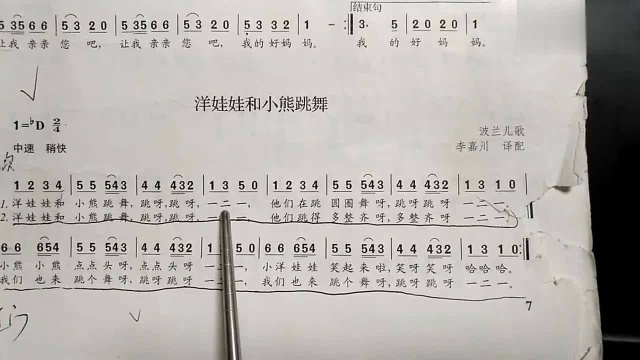 5 35 6 6 | 5 3 2 0 | 5 35 6 6 | 5 3 2 0 | 5 5 2 3 | 1 - :‖ 3. 5 | 2 0 2 0 | 1
结束句
让我 亲亲 您 吧, 让我 亲亲 您 吧, 我的好妈 妈。 我 的 好 妈 妈。
洋娃娃和小熊跳舞
1=♭D 2/4
波兰儿歌
中速 稍快
李嘉川 译配
1 2 3 4 | 5 5 543 | 4 4 432 | 1 3 5 0 | 1 2 3 4 | 5 5 543 | 4 4 432 | 1 3 1 0 |
1. 洋娃娃和 小熊跳舞, 跳呀,跳呀, 一二一, 他们在跳 圆圈舞呀, 跳呀跳呀 一二一。
2. 洋娃娃和 小熊跳舞, 跳呀,跳呀, 一二一, 他们跳得 多整齐呀, 多整齐呀 一二一。
6 6 654 | 5 5 543 | 4 4 432 | 1 3 5 0 | 6 6 654 | 5 5 543 | 4 4 432 | 1 3 1 0 :‖
小熊 小熊 点点头呀, 点点头呀 一二一, 小洋娃娃 笑起来啦, 笑呀笑呀 哈哈哈。
我们 也来 跳个舞呀, 跳呀跳呀 一二一, 我们 也来 跳个舞呀, 跳呀跳呀 一二一。
7